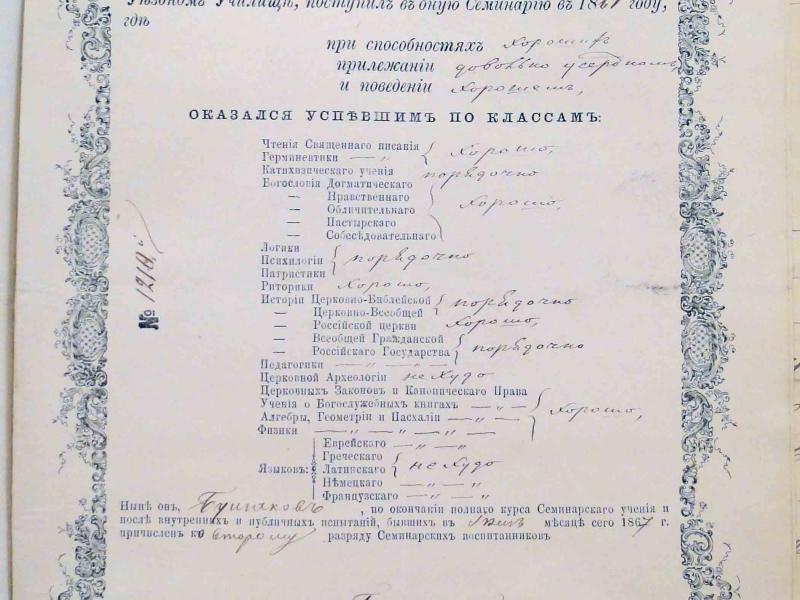 Уѣздномъ Училищѣ, поступилъ въ оную Семинарію въ 1861 году,
гдѣ
при способностяхъ хорошихъ
прилежаніи довольно усердномъ,
и поведеніи хорошемъ,
ОКАЗАЛСЯ УСПѢВШИМЪ ПО КЛАССАМЪ:
Чтенія Священнаго писанія
Герминевтики — „ { хорошо,
Катихизическаго ученія порядочно
Богословія Догматическаго
— Нравственнаго
— Обличительнаго { хорошо,
— Пастырскаго
— Собесѣдовательнаго
Логики
Психологіи { порядочно
Патристики
Риторики хорошо,
Исторіи Церковно-Библейской { порядочно
— Церковно-Всеобщей
— Россійской церкви хорошо,
— Всеобщей Гражданской
— Россійскаго Государства { порядочно
Педагогики — „ — „ —
Церковной Археологіи не худо
Церковныхъ Законовъ и Каноническаго Права
Ученія о Богослужебныхъ книгахъ — „ —
Алгебры, Геометріи и Пасхаліи — „ — { хорошо,
Физики — „ — „ — „ —
Еврейскаго — „ — „
Греческаго
Языковъ: Латинскаго { не худо
Нѣмецкаго — „ — „
Французскаго — „ — „
№ 1218.
Нынѣ онъ, , по окончаніи полнаго курса Семинарскаго ученія и
послѣ внутреннихъ и публичныхъ испытаній, бывшихъ въ мѣсяцѣ сего 1867 г.
причисленъ ко второму разряду Семинарскихъ воспитанниковъ